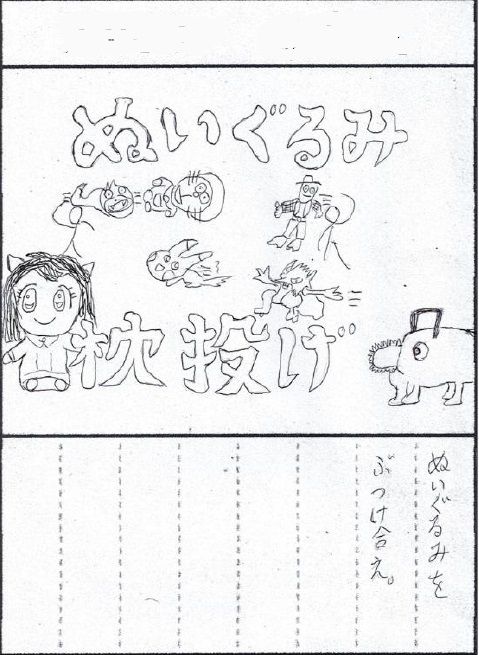 ぬいぐるみ
枕投げ
ぬいぐるみを
ぶつけ合え。